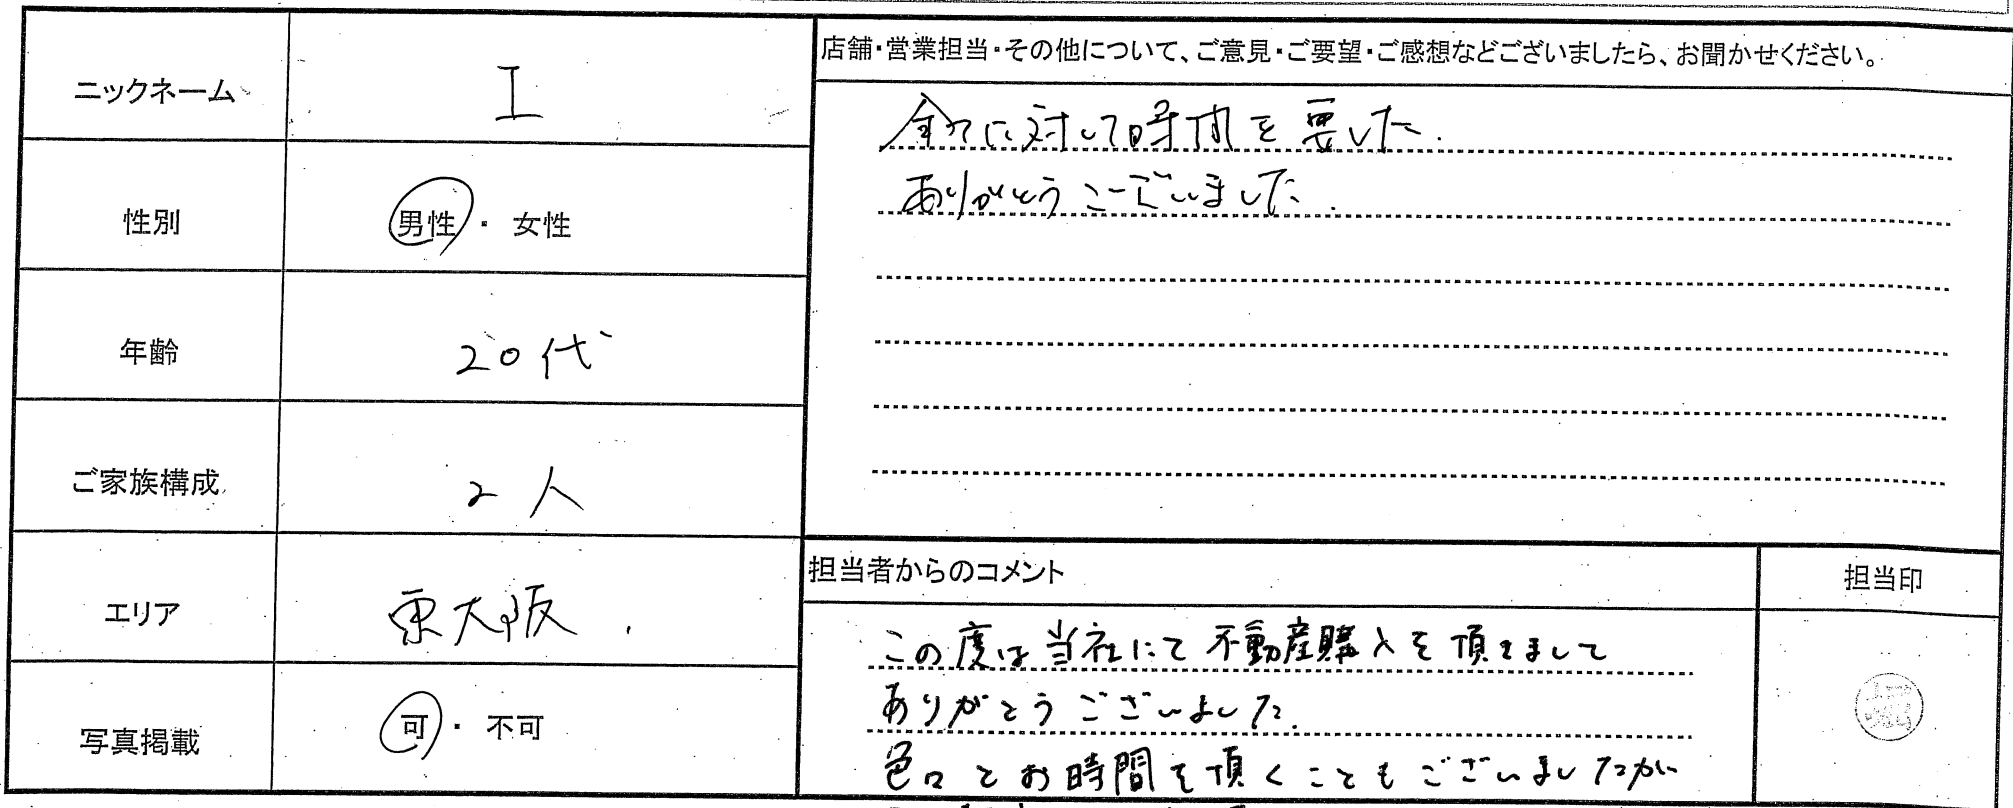 ニックネーム
I
性別
男性・女性
年齢
20代
ご家族構成
2人
エリア
東大阪.
写真掲載
可・不可
店舗・営業担当・その他について、ご意見・ご要望・ご感想などございましたら、お聞かせください。
全てに対して時間を要した.
ありがとうございました.
担当者からのコメント
この度は当社にて不動産購入を頂きまして
ありがとうございました.
色々とお時間を頂くこともございましたが
担当印